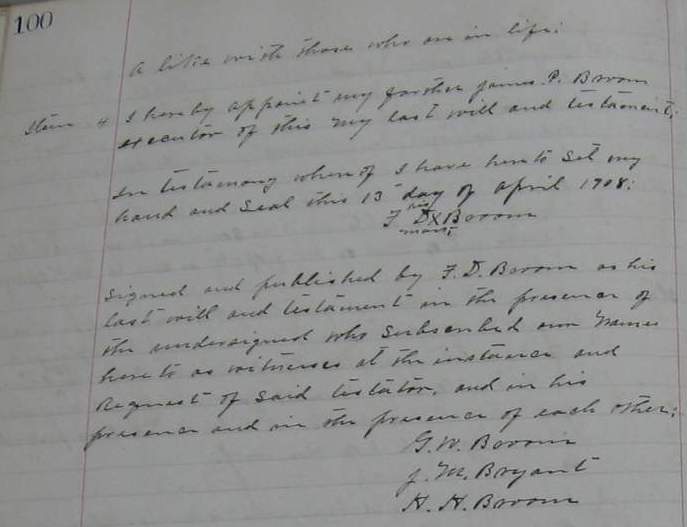 100
A like with those who are in life:
Item 4 I hereby appoint my farther James P. Broom
executor of this my last will and testament;
In testamony whereof I have here to set my
hand and seal this 13 day of April 1908:
his
F. D X Broom
mark
Signed and published by F. D. Broom as his
last will and testament in the presence of
the undersigned who subscribed our names
here to as witnesses at the instance and
request of said testator, and in his
presence and in the presence of each other;
G. W. Broom
J. M. Bryant
H. H. Broom